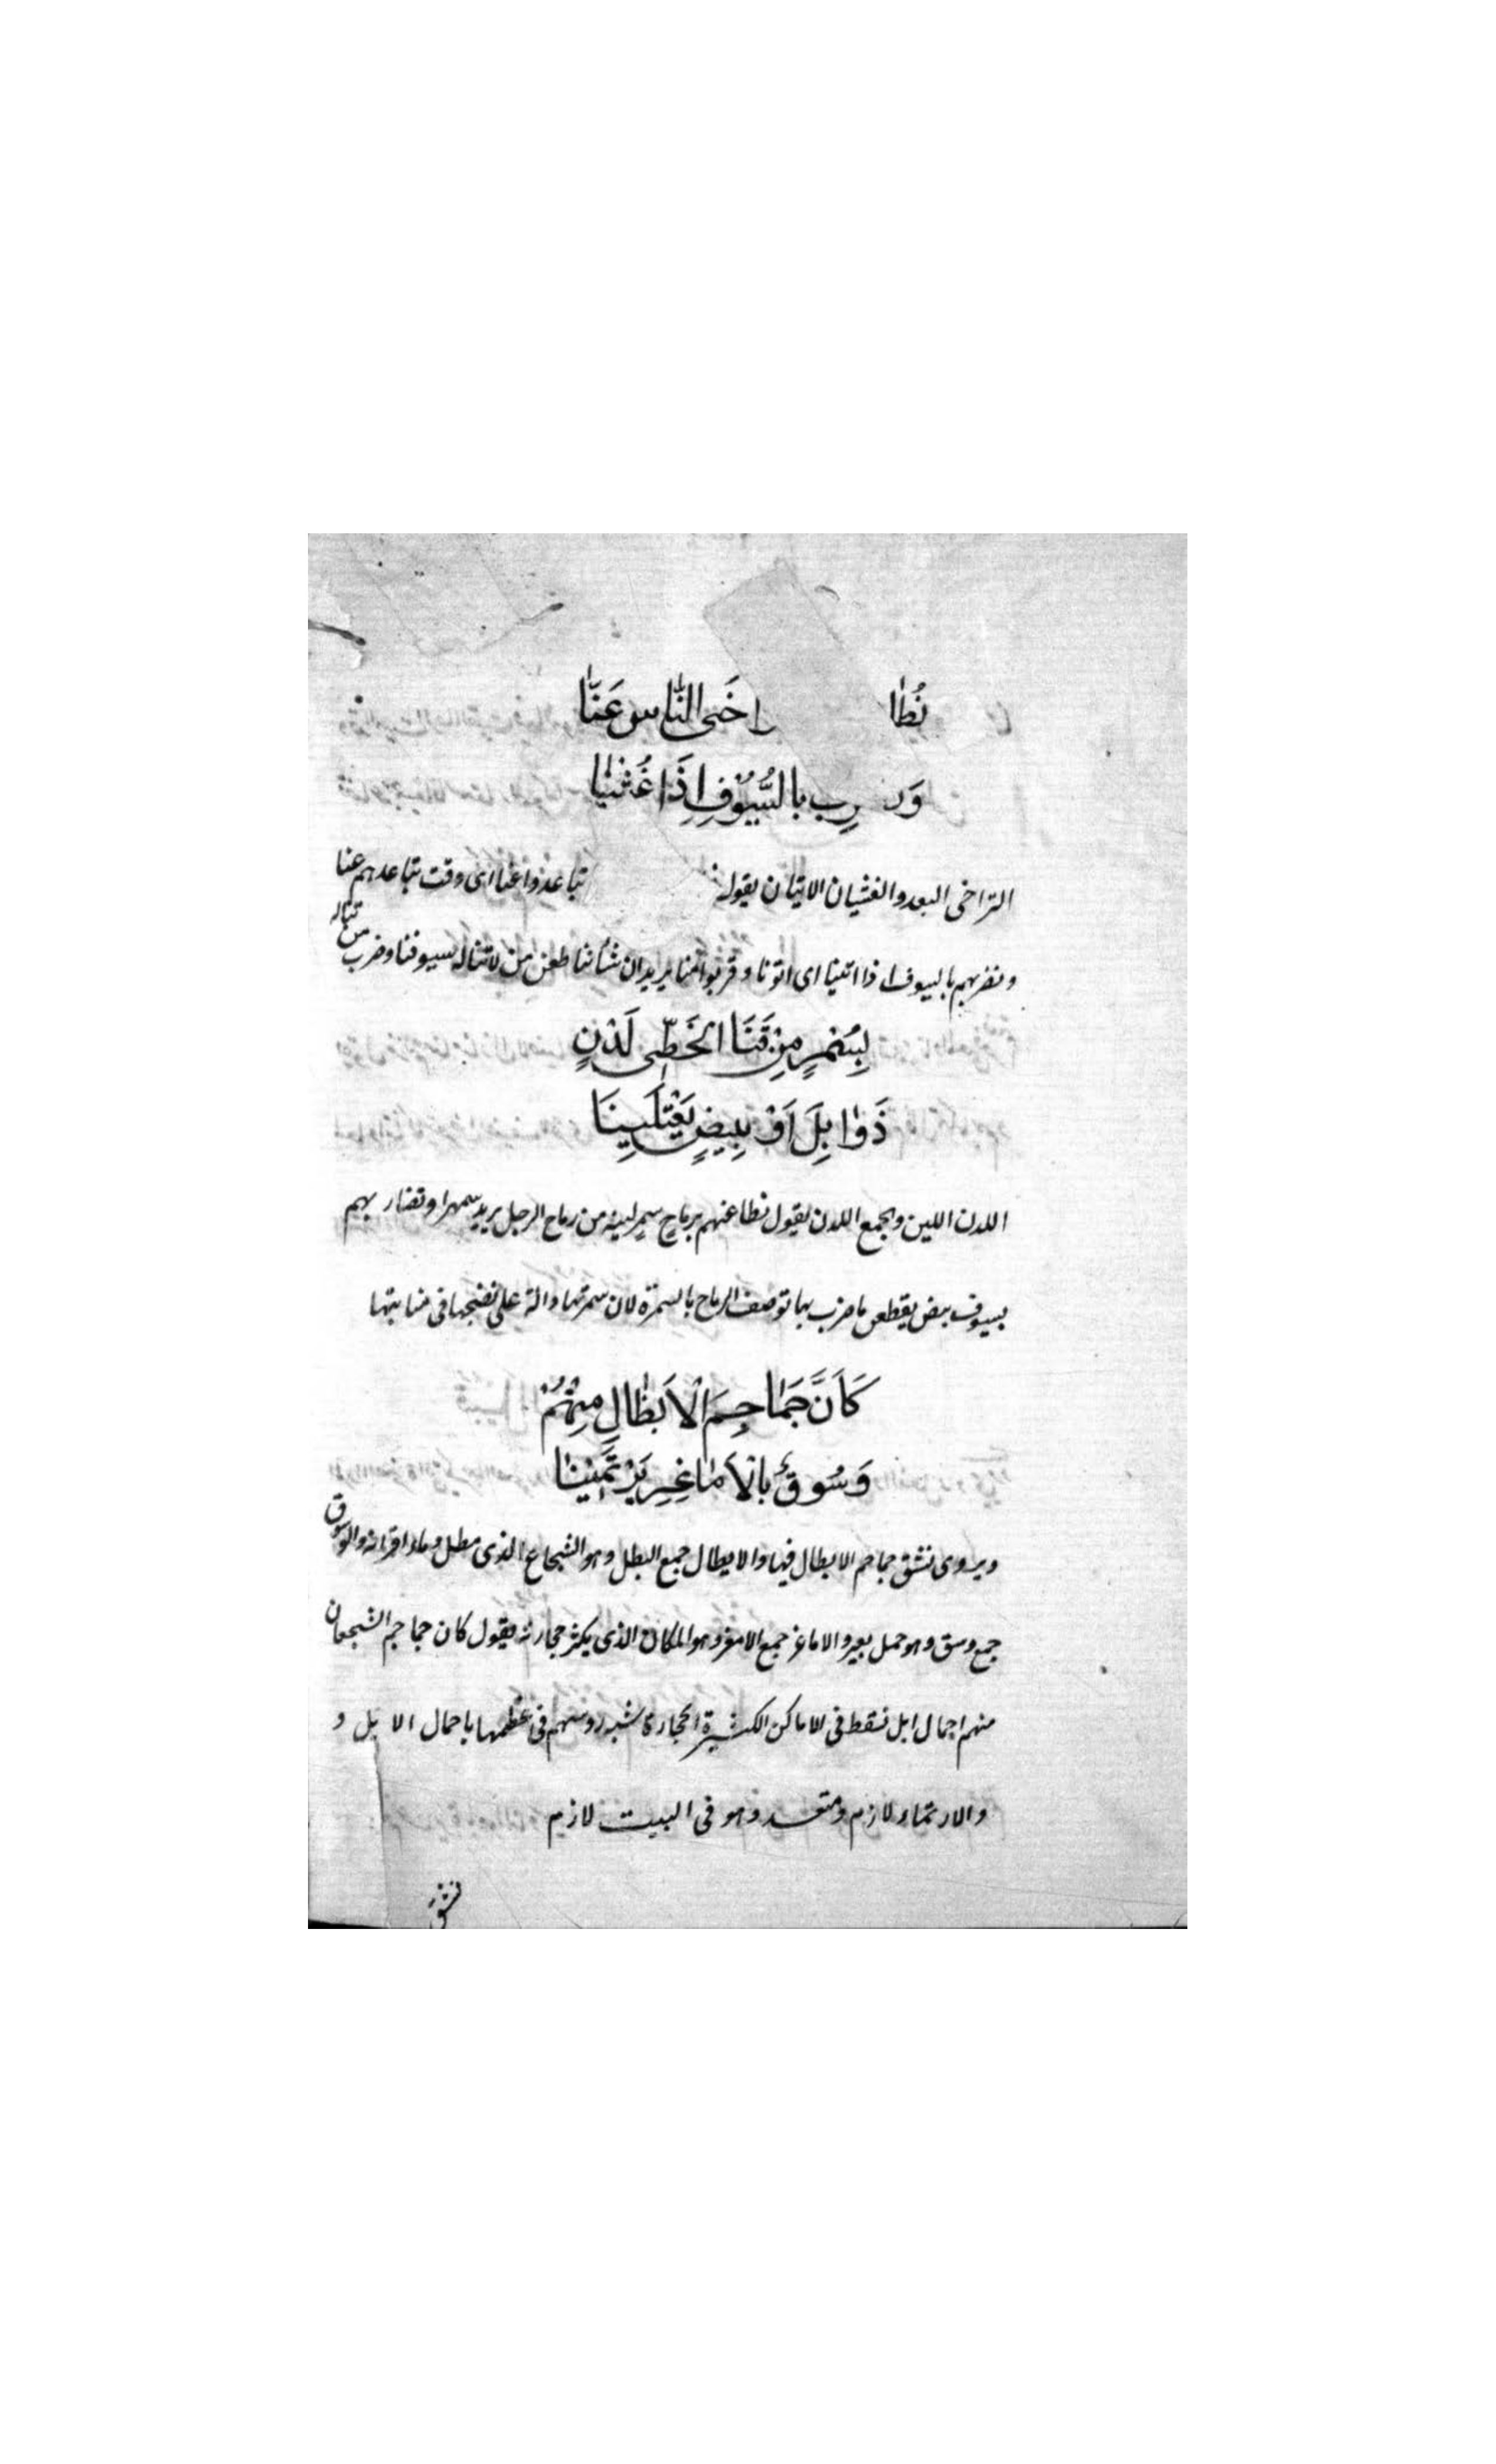 نُطَا اخَى النَّاسُ عَنَّا
وَر رِب بالسُّيُوْفِ اِذَا غُشْيْنَا
التراخى البعد والغشيان الاتيان يقول تباعدوا عنا اى وقت تباعدهم عنا
ونضربهم بالسيوف اذا اتينا اى اتونا وقربوا منا يريد ان شأننا طعن من لا تناله سيوفنا وضرب من تناله
بِسُمْرٍ مِنْ قَنَا الْخَطِّى لَدْنٍ
ذَوَابِلَ اَوْ بِبِيضٍ يَعْتَلَيِينَا
اللدن اللين والجمع اللدن يقول نطاعنهم برماح سمر لينة من رماح الرجل يريد سمهرا وتضار بهم
بسيوف بيض يقطعن ما ضرب بها توصف الرماح بالسمرة لان سمرتها دالة على نضجها فى منابتها
كَاَنَّ جَمَاجِمَ الْاَبْطَالِ مِنْهُمْ
وَسُوقٌ بِالْاَمَاغِرِ يَرْتَمَيْنَا
ويروى نشق جماجم الابطال فيها والابطال جمع البطل وهو الشجاع الذى مطل وماد اقرانه والوسوق
جمع وسق وهو حمل بعير والاماغر جمع الامغر وهو المكان الذى يكثر حجارته يقول كان جماجم الشجعان
منهم اجمال ابل نسقط فى الاماكن الكثيرة الحجارة شبه روسهم فى عظمها باحمال الابل و
والارتماء لازم ومتعد وهو فى البيت لازم
نشق